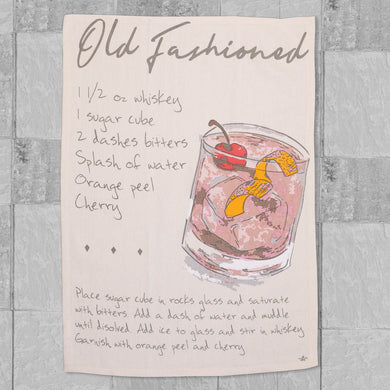 Old Fashioned
1 1/2 oz whiskey
1 sugar cube
2 dashes bitters
Splash of water
Orange peel
Cherry
Place sugar cube in rocks glass and saturate
with bitters. Add a dash of water and muddle
until disolved. Add ice to glass and stir in whiskey.
Garnish with orange peel and cherry